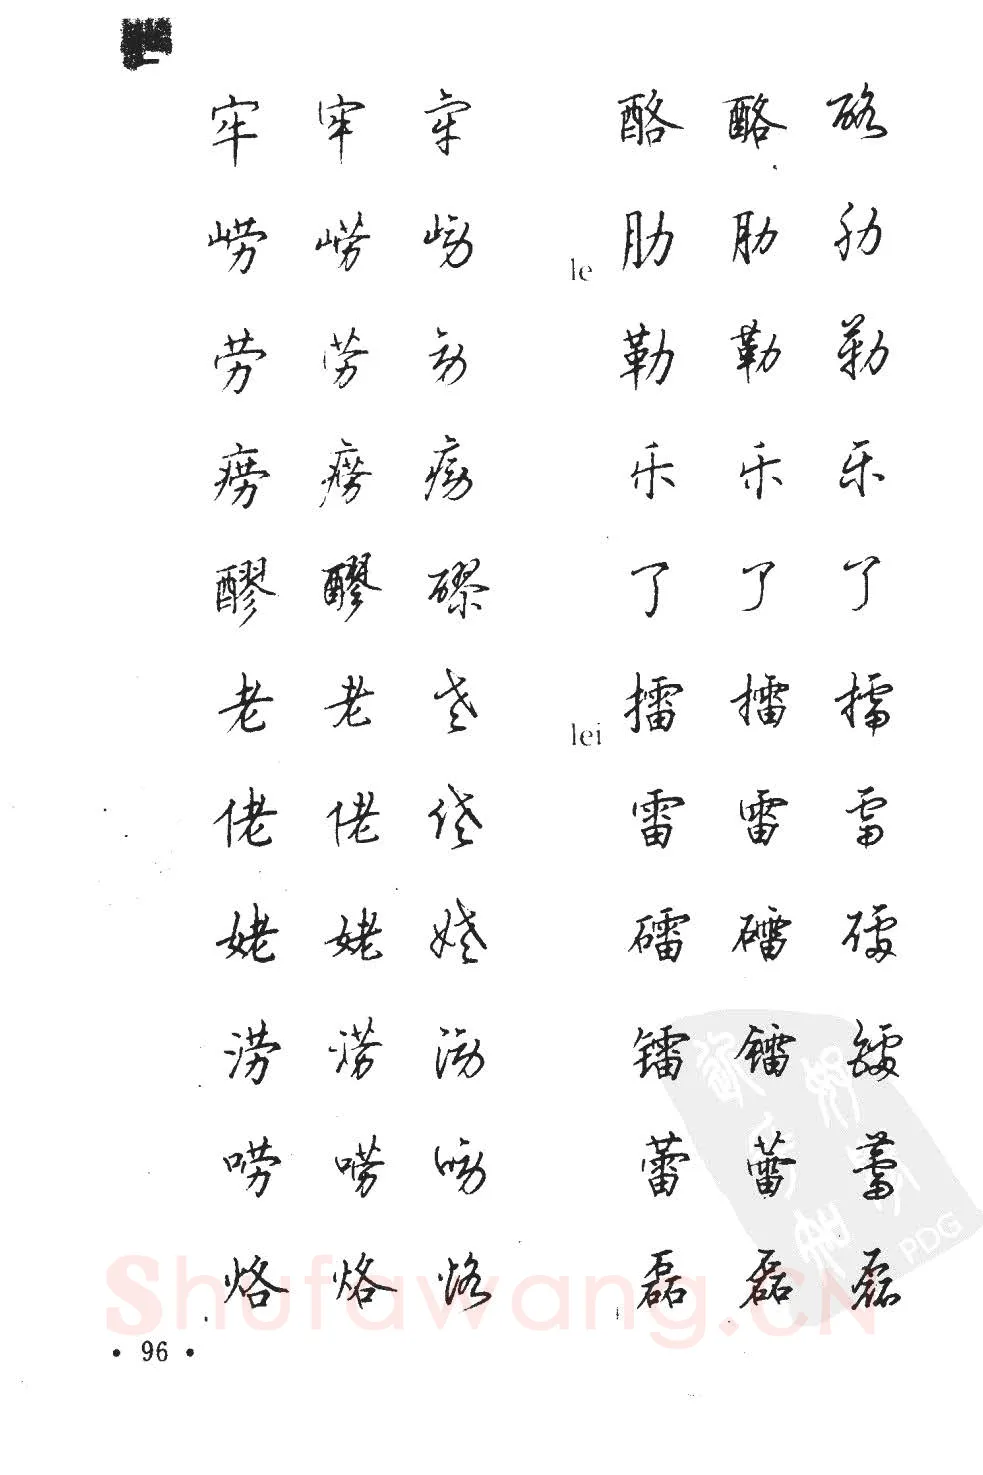 牢 牢 牢
崂 崂 崂
劳 劳 劳
痨 痨 痨
醪 醪 醪
老 老 老
佬 佬 佬
姥 姥 姥
涝 涝 涝
唠 唠 唠
烙 烙 烙
酪 酪 酪
le 肋 肋 肋
勒 勒 勒
乐 乐 乐
了 了 了
lei 擂 擂 擂
雷 雷 雷
礌 礌 礌
镭 镭 镭
蕾 蕾 蕾
磊 磊 磊
PDG
Shufawang.CN
• 96 •